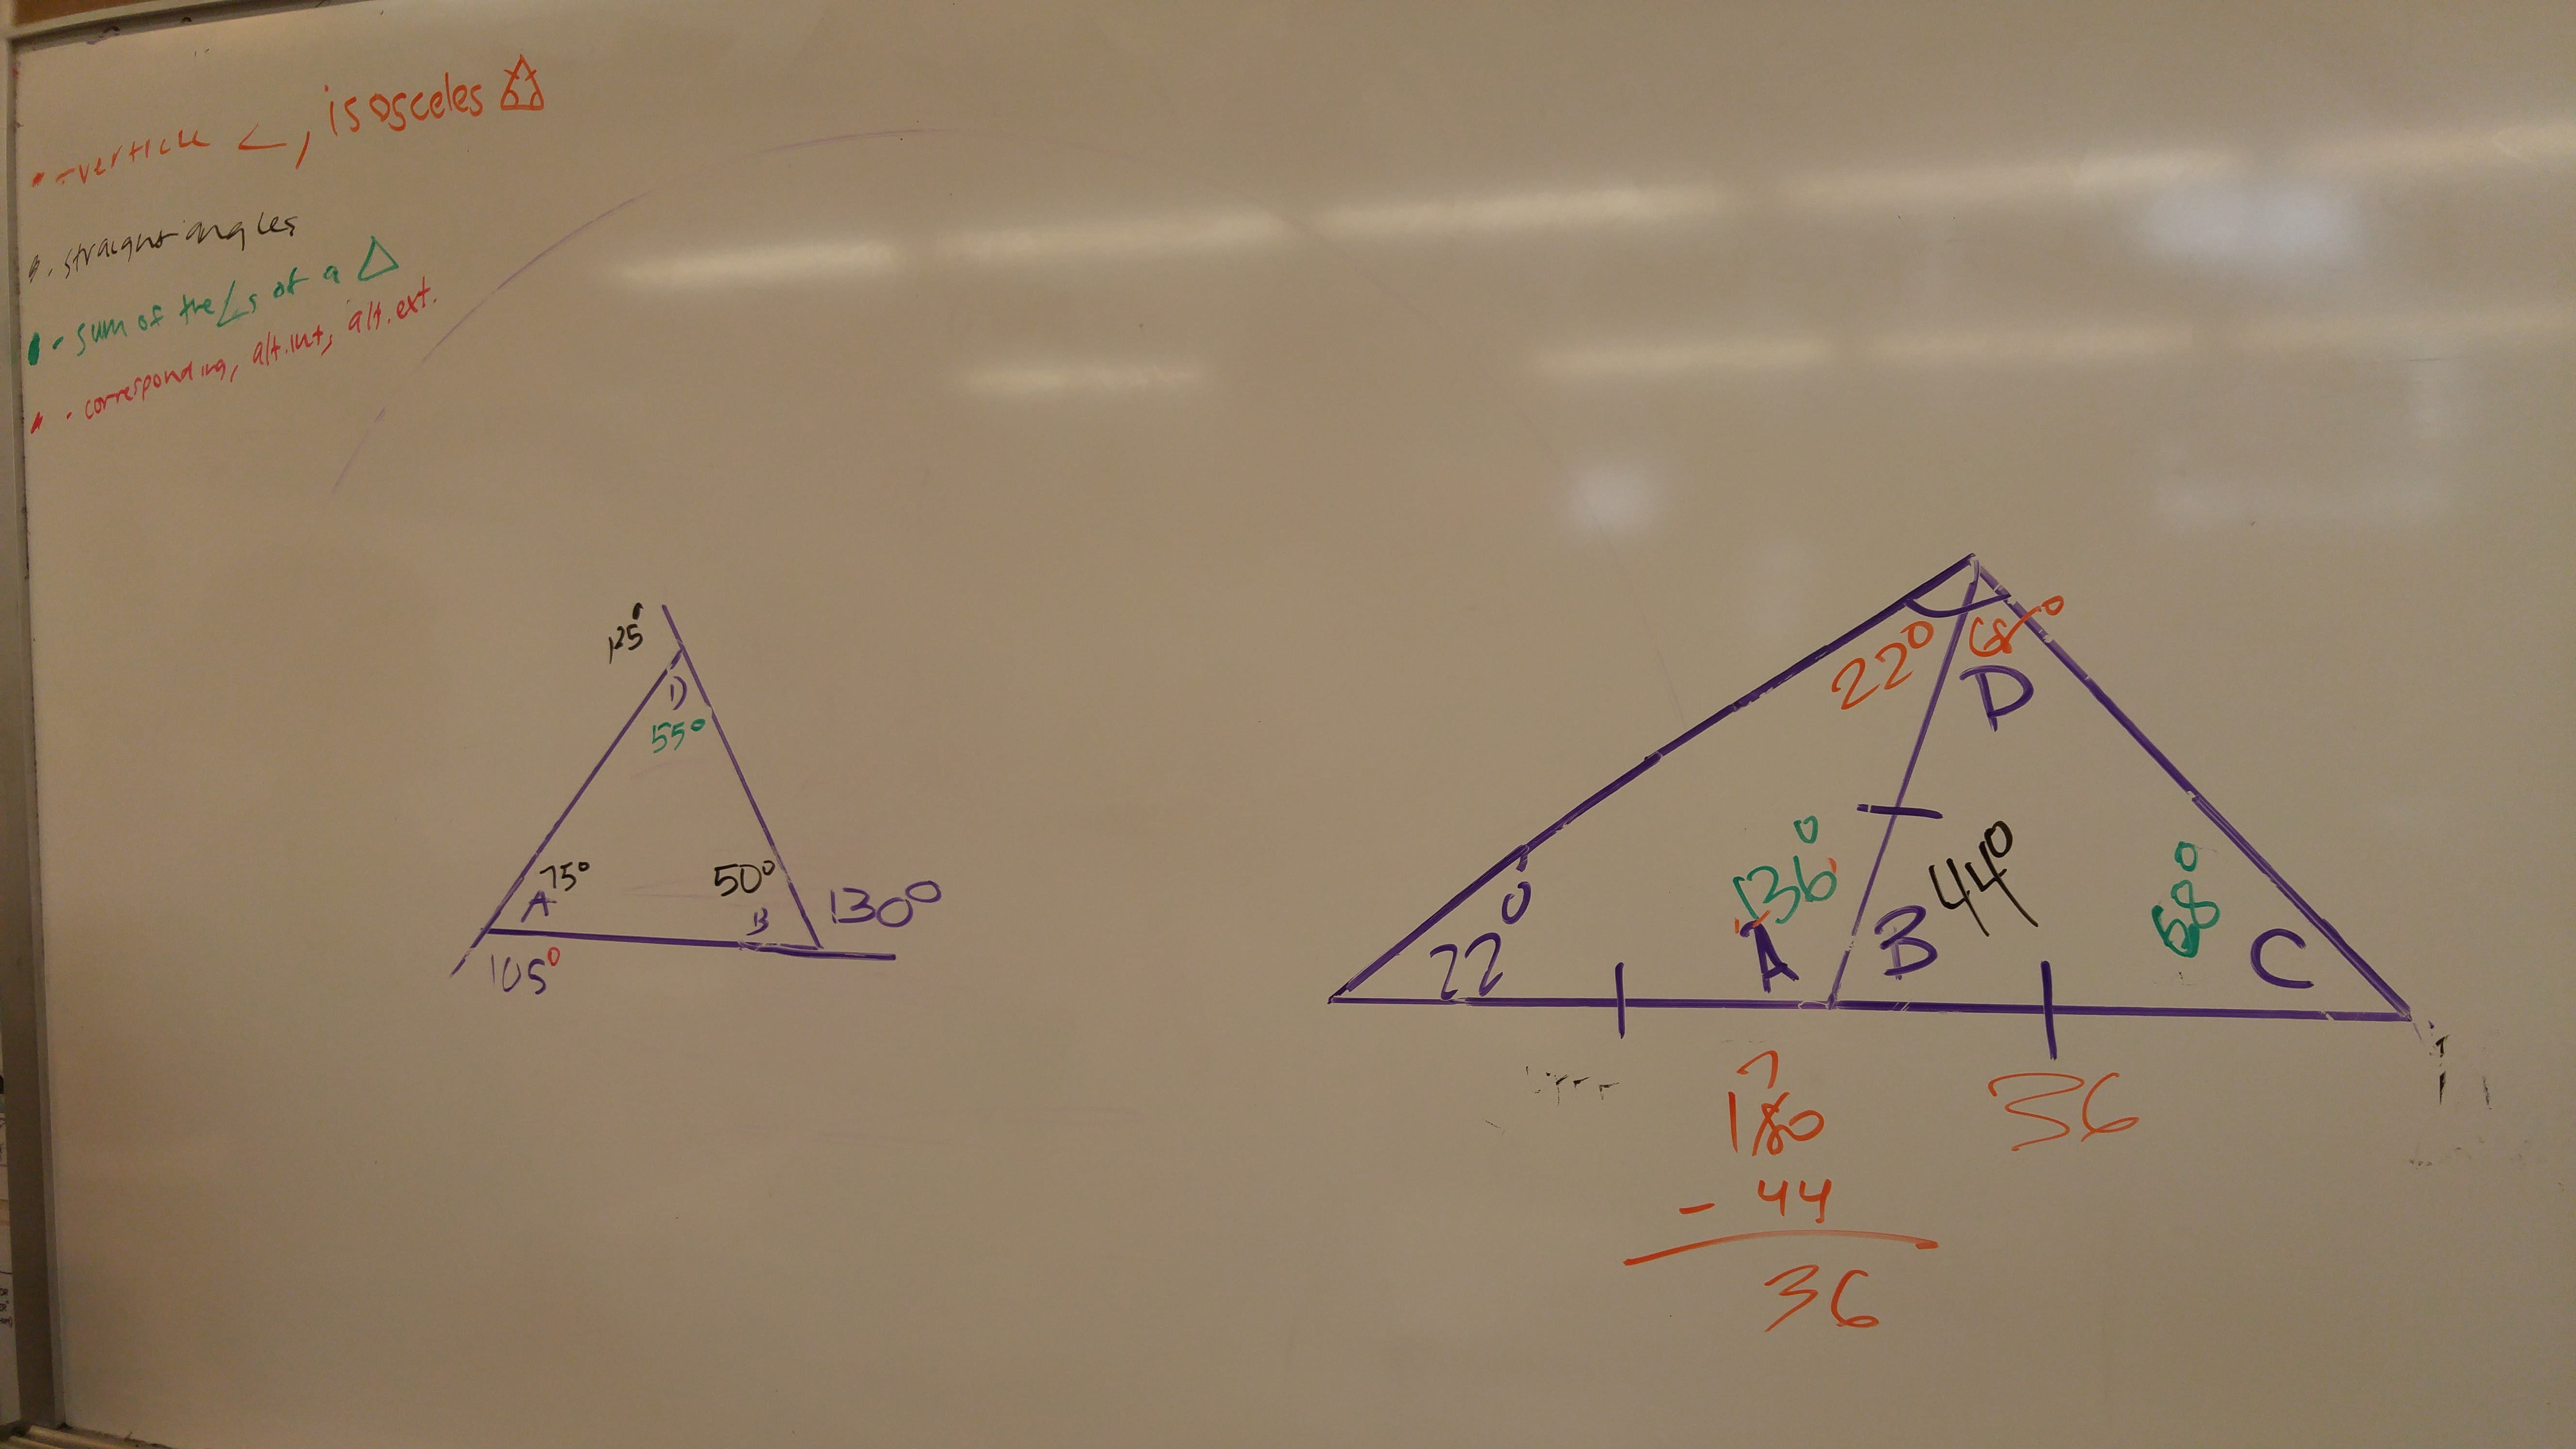 -verticle ∠, isosceles △
- straight angles
- sum of the ∠s of a △
- corresponding, alt.int, alt.ext.
125°
D
55°
75°
A
50°
B
130°
105°
22°
68°
D
136°
A
B
44°
68°
C
22°
7
180
- 44
36
36